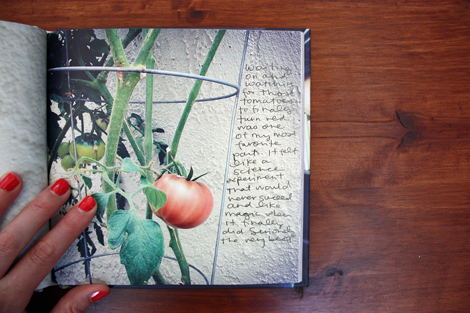 Waiting
on and
watching
for those
tomatoes
to finally
turn red
was one
of my most
favorite
parts. It felt
like a
science
experiment
that would
never succeed
and like
magic when
it finally
did. Seriously
the very best.